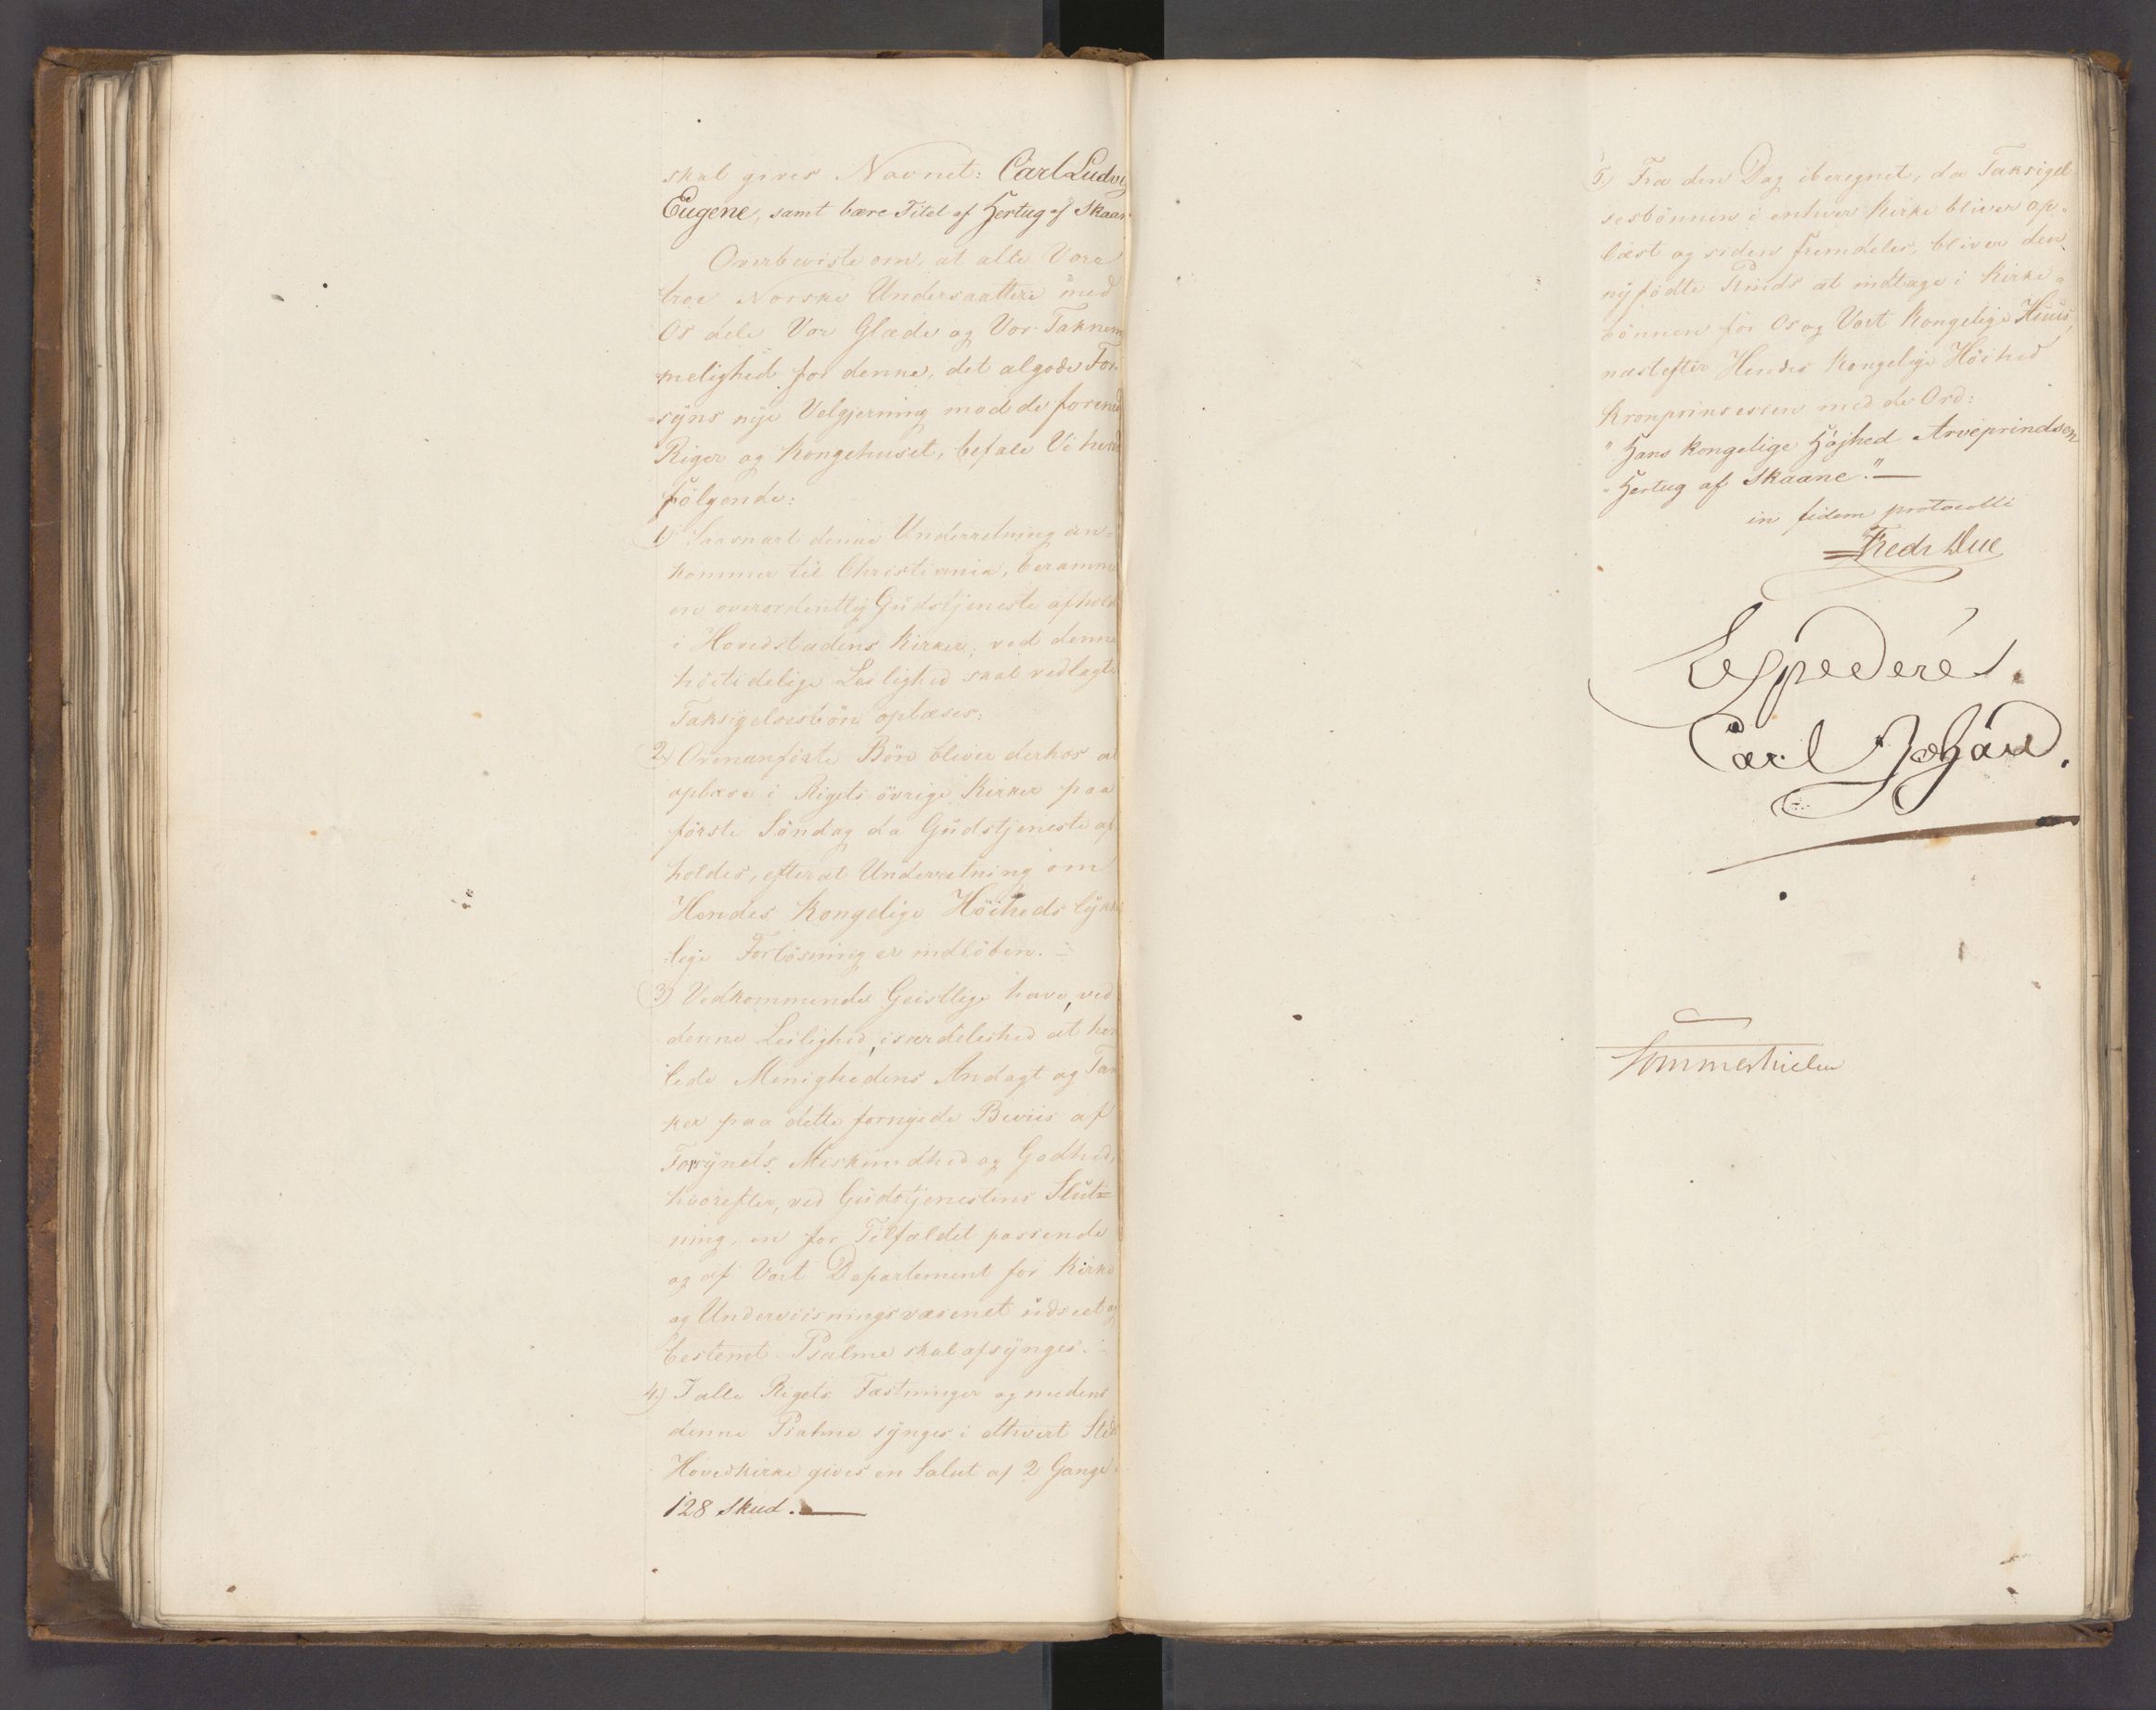 skal gives Navnet: Carl Ludvig
Eugene, samt bære Titel af Hertug af Skaan
Overbeviste om, at alle Vore
troe Norske Undersaattere med
Os dele Vor Glæde og Vor Taknem
melighed for denne, det algode For¬
syns nye Velgjerning mod de forened
Riger og Kongehuset, befale Vi herved
følgende:
1) Saasnart denne Underretning an¬
kommer til Christiania, berammes
en overordentlig Gudstjeneste afholdt
i Hovedstadens Kirker; ved denne
høitidelige Leilighed skal vedlagte
Taksigelsesbøn oplæses:
2) Ovenanførte Bøn bliver derhos at
oplæse i Rigets øvrige Kirker paa
første Søndag da Gudstjeneste af
holdes, efterat Underretning om
Hendes Kongelige Høiheds lykke
lige Forløsning er indløben.
3) Vedkommende Geistlige have, ved
denne Leilighed, isærdeleshed at hen
lede Menighedens Andagt og Tan
ker paa dette fornyede Beviis af
Forsynets Miskundhed og Godhed,
hvorefter, ved Gudstjenestens Slut=
ning, en for Tilfældet passende
og af Vort Departement for Kirke
og Underviisningsvæsenet udseet og
bestemt Psalme skal afsynges.
4) I alle Rigets Fæstninger og medens
denne Psalme synges i ethvert Steds
Hovedkirke gives en Salut af 2 Gange
128 Skud.
5) Fra den Dag iberegnet, da Taksigel
sesbønnen i enhver Kirke bliver op¬
læst og siden fremdeles, bliver den
nyfødte Prinds at indtage i Kirke¬
bønnen for Os og Vort Kongelige Huus,
næst efter Hendes Kongelige Høihed
Kronprinsessen med de Ord:
" Hans Kongelige Højhed Arveprindsen
" Hertug af Skaane."
in fidem protocolli
Fredr Due
Expederes.
Carl Johan.
Sommerhielm